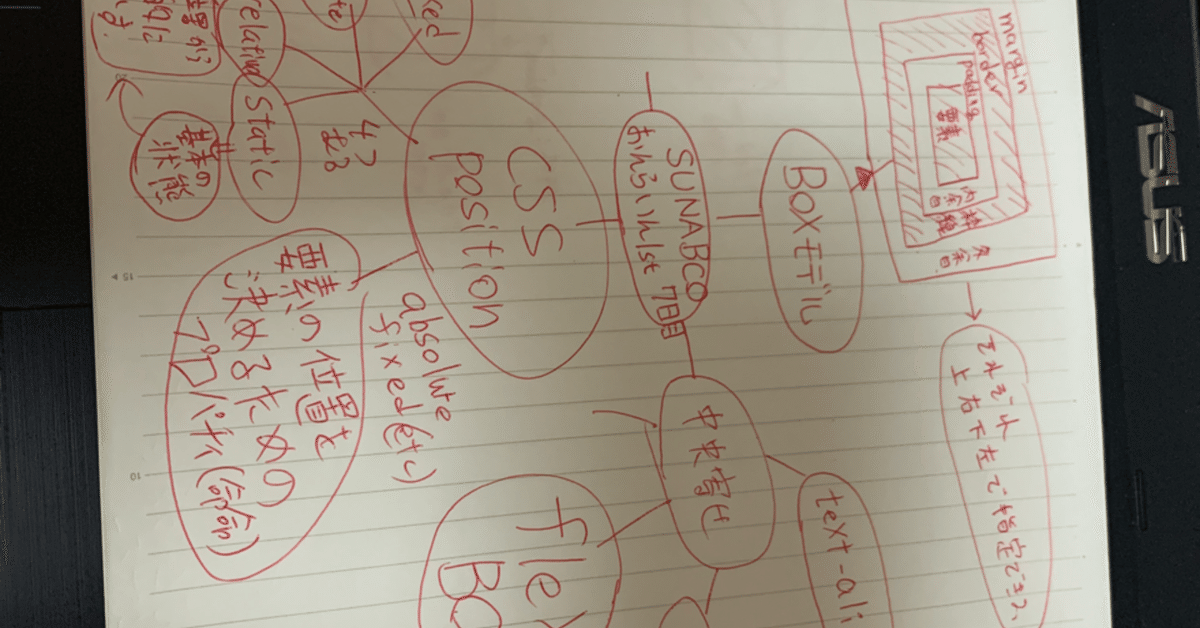 margin
border
padding
要素
内余白
枠線
外余白
BOXモデル
それぞれ
上右下左で指定できる
SUNABCO
おんらいんfst 7日目
CSS
position
absolute
fixed(せい)
要素の位置を
決める為の
プロパティ
static
基本の
状態
relative
中央寄せ
text-ali
flex
BO
ASUS
15
10
20